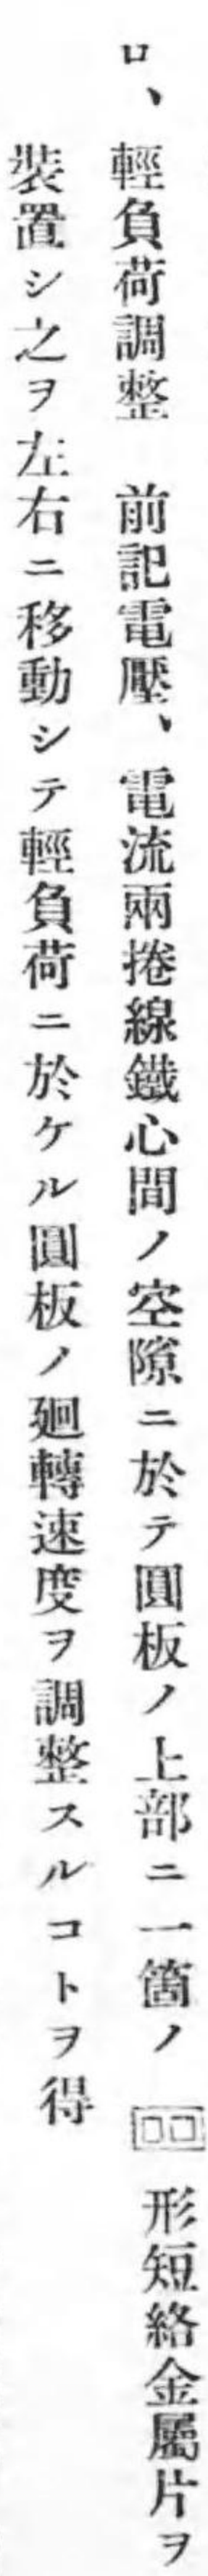 ロ、輕負荷調整　前記電壓、電流兩捲線鐵心間ノ空隙ニ於テ圓板ノ上部ニ一箇ノ　形短絡金屬片ヲ
裝置シ之ヲ左右ニ移動シテ輕負荷ニ於ケル圓板ノ廻轉速度ヲ調整スルコトヲ得